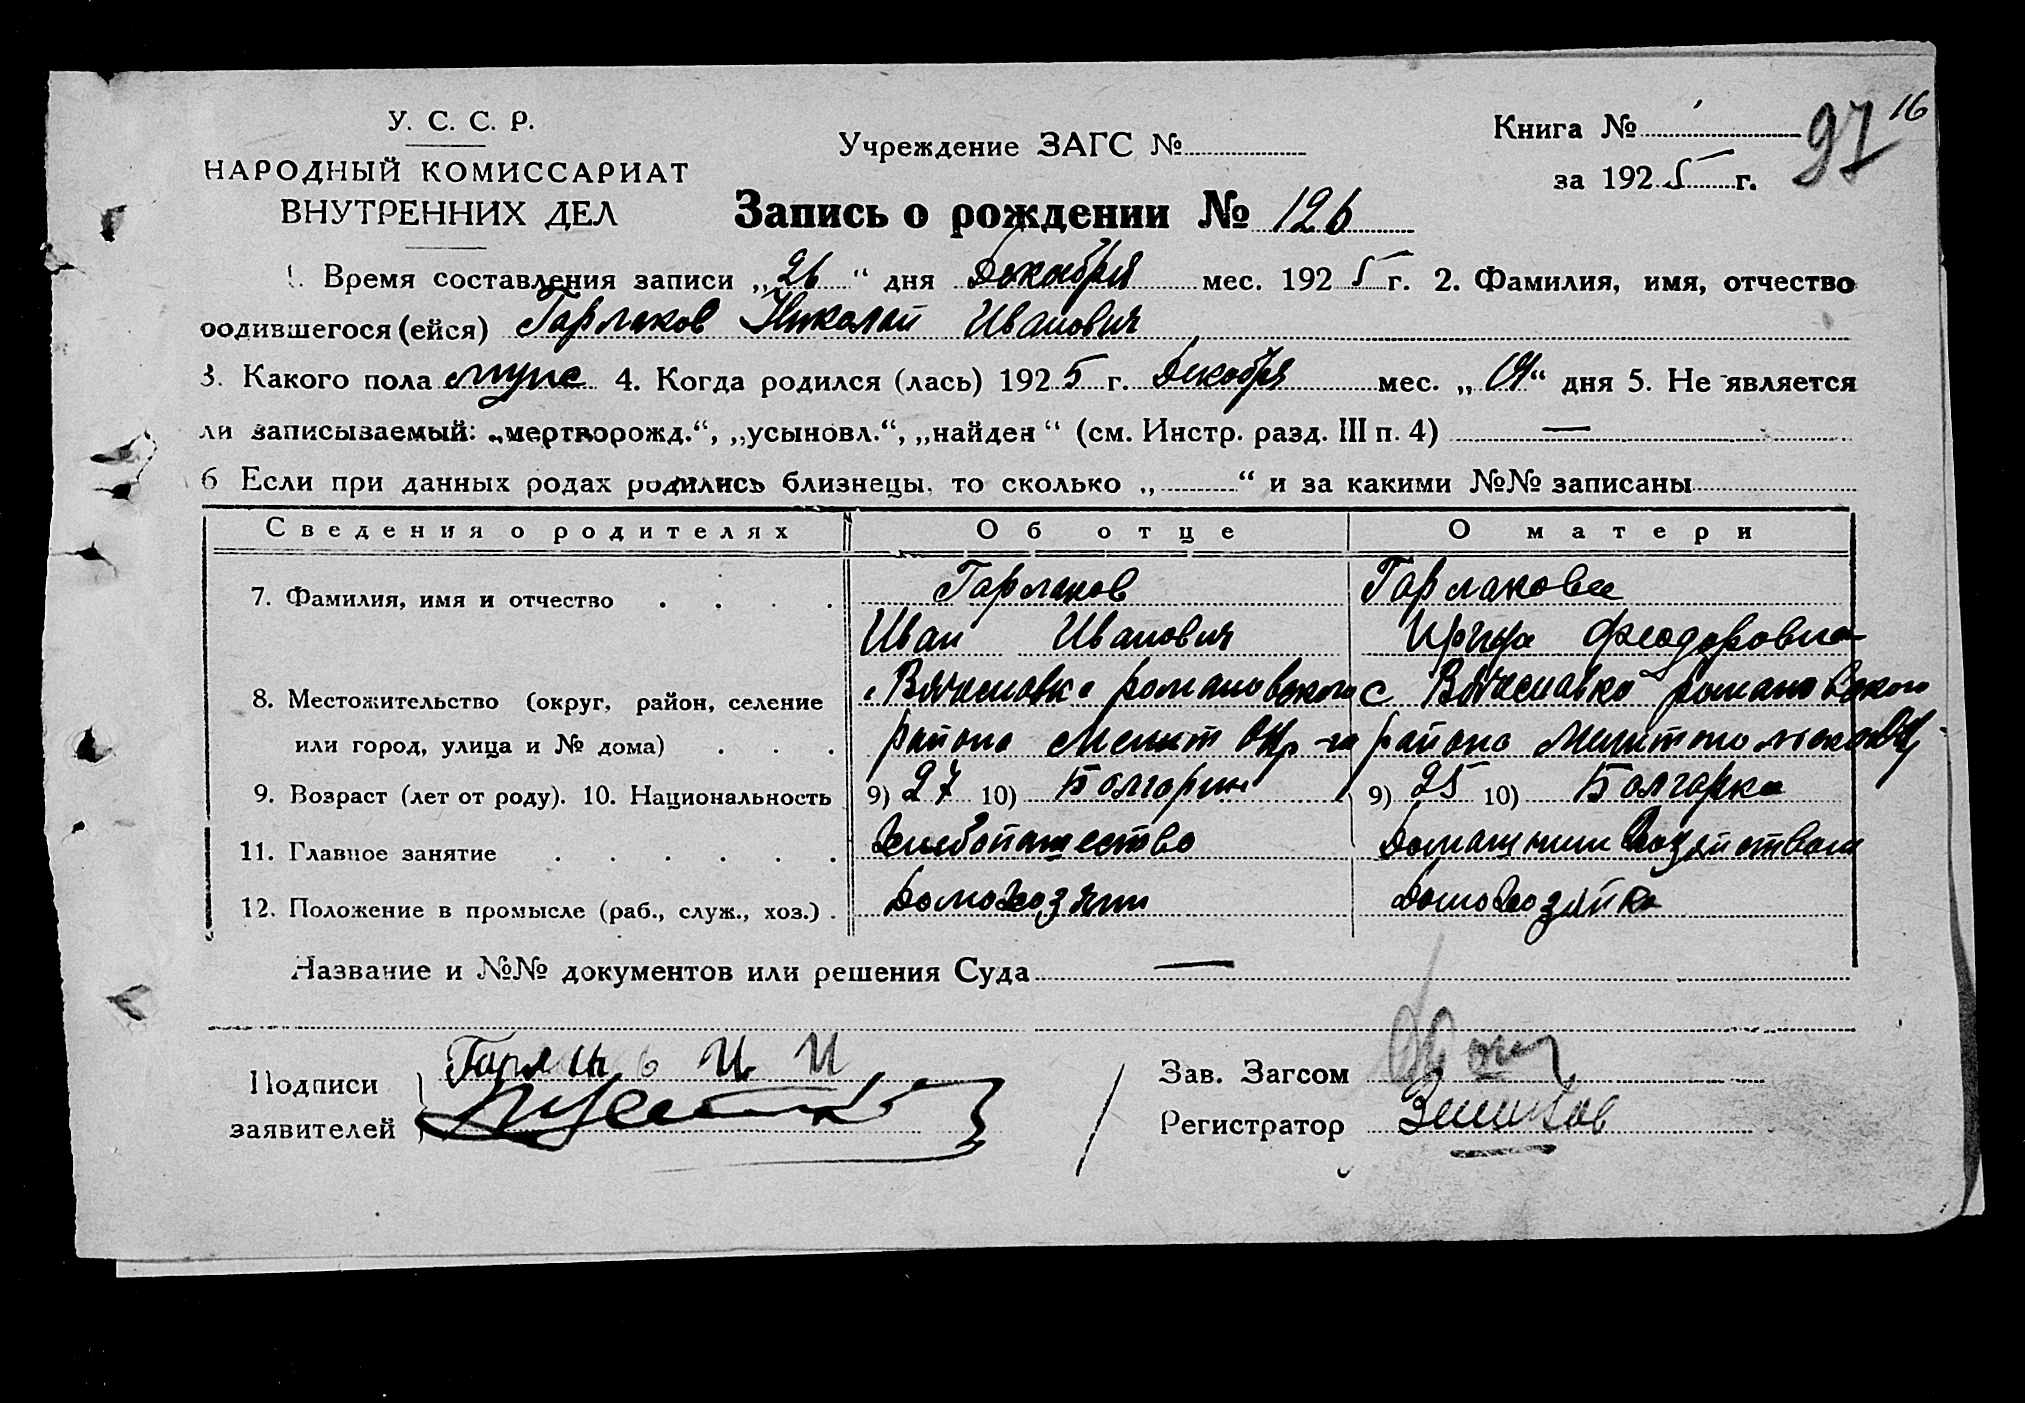 У. С. С. Р.
НАРОДНЫЙ КОМИССАРИАТ
ВНУТРЕННИХ ДЕЛ
Учреждение ЗАГС №
Книга № 97 16
за 1925 г.
Запись о рождении № 126
1. Время составления записи „26“ дня Декабря мес. 1925 г. 2. Фамилия, имя, отчество
родившегося (ейся) Гарлаков Николай Иванович
3. Какого пола муж 4. Когда родился (лась) 1925 г. Декабря мес. „19“ дня 5. Не является
ли записываемый: „мертворожд.“, „усыновл.“, „найден“ (см. Инстр. разд. III п. 4) —
6 Если при данных родах родились близнецы, то сколько „ “ и за какими №№ записаны
Сведения о родителях Об отце О матери
7. Фамилия, имя и отчество . . . . Гарлаков Гарлакова
Иван Иванович Ирина Феодоровна
8. Местожительство (округ, район, селение с Вячеславка романовского с Вячеславка романовского
или город, улица и № дома) . . . района Мелит окр-га района
9. Возраст (лет от роду). 10. Национальность 9) 27 10) Болгарин 9) 25 10) Болгарка
11. Главное занятие . . . . . . Хлебопашество Домашним
12. Положение в промысле (раб., служ., хоз.) . Домохозяин Домохозяйка
Название и №№ документов или решения Суда —
Подписи
заявителей
И И
Зав. Загсом
Регистратор